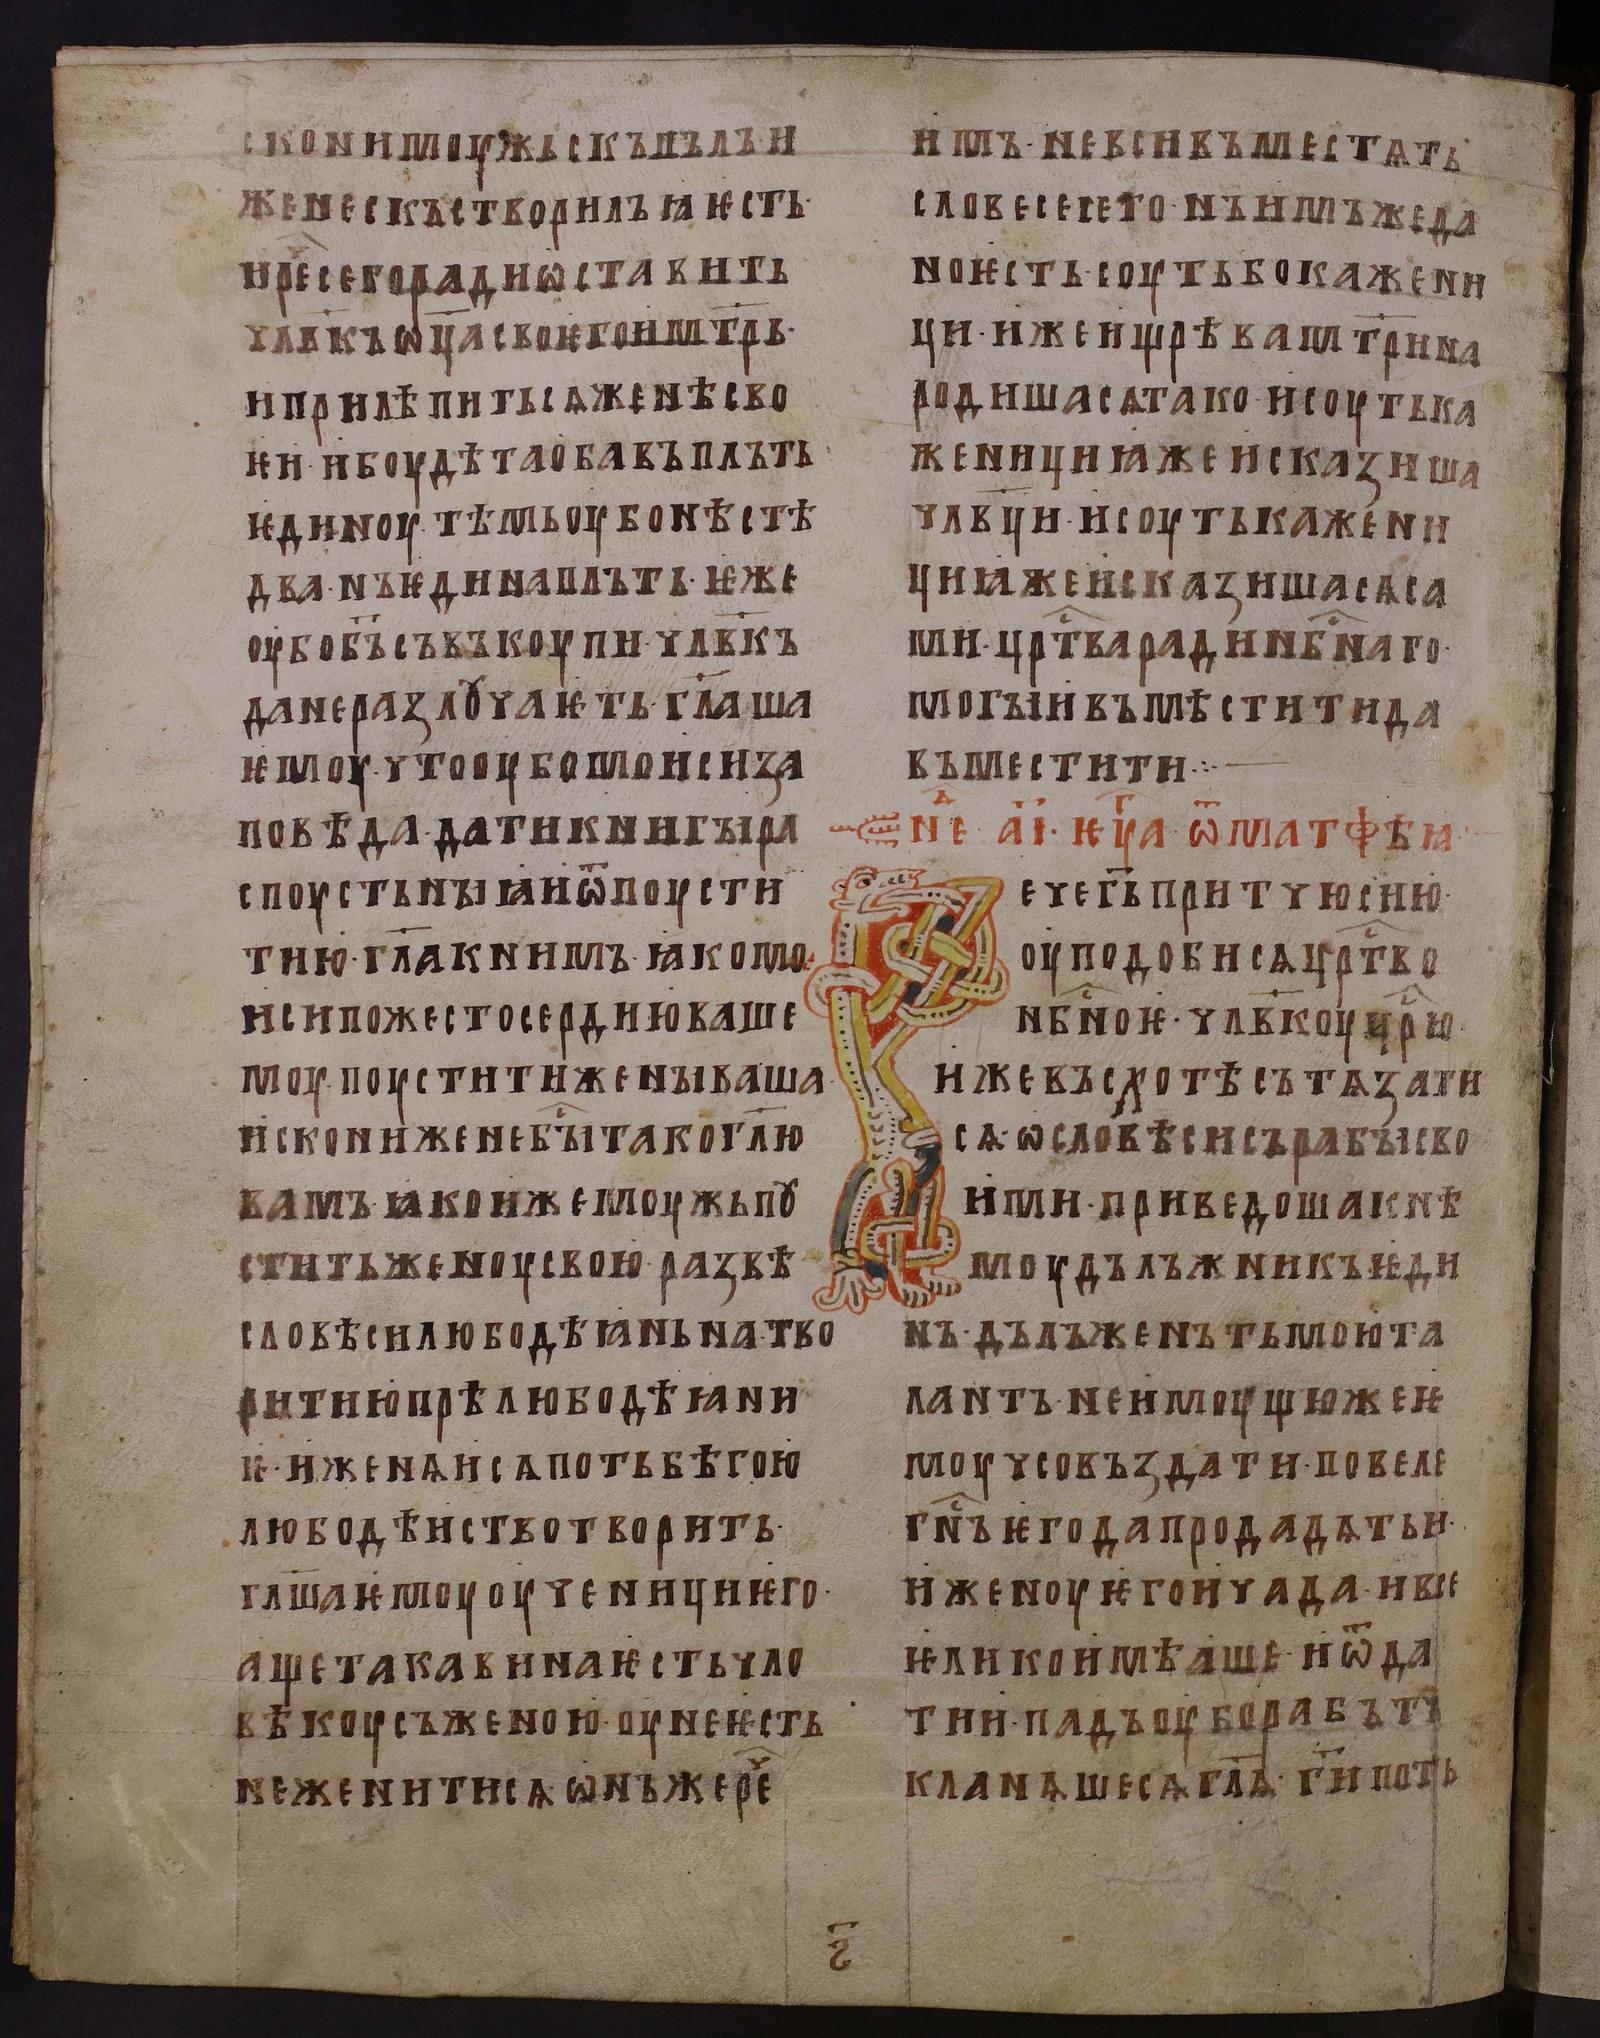 скони моужьскъ полъ· и
женескъ створилъ ꙗ ѥсть·
и рⷱ҇е сего ради ѡставить
члв҃къ ѡц҃а своѥго и мт҃рь·
и прилѣпитьсѧ женѣ сво
ѥи· и боудѣта оба въ плъть
ѥдиноу· тѣмь оубо нѣстѣ
два· нъ ѥдина плъть· ѥже
оубо бъ҃ съвъкоупи· члв҃къ
да не разлꙋчаѥть· гл҃аша
ѥмоу· что оубо мои си за
повѣда· дати книгы ра
споустьныꙗ и ѿпоусти
тию· гл҃а к нимъ· ꙗко мо
иси по жестосердию ваше
моу· поустити жены ваша
искони же не бы тако гл҃ю
вамъ· ꙗко иже моужь пꙋ
стить женоу свою· развѣ
словѣси любодѣꙗньна· тво
рит ю прѣлюбодѣꙗни
ѥ· и женѧисѧ потьбѣгою
любодѣиство творить·
гл҃ша ѥмоу оученици ѥго·
аще така вина ѥсть чло
вѣкоу съ женою· оунеѥсть
не женитисѧ· ѡнъ же рече
имъ· не вси въместѧть
словесе сего· нъ имъже да
но ѥсть· соуть бо кажени
ци· иже ищрѣва мт҃рина
родишасѧ тако· и соуть ка
женици ꙗже исказиша
члв҃ци· и соуть кажени
ци ꙗже исказишасѧ са
ми· црⷭ҇тва ради нбⷭ҇наго·
могыи въмѣстити да
въместити·:·
Не҃дⷧ аі҃· ѥуⷢ҇а· ѿ матфѣꙗ·
ече гь҃ притчю сию·
оуподобисѧ црⷭ҇тво
нбⷭ҇ноѥ· члв҃коу црⷭ҇ю
иже въсхотѣ сътѧзати
сѧ· ѡ словѣси съ рабы сво
ими· приведоша к нѣ
моу дължникъ ѥди
нъ· дълъженъ тьмою та
лантъ· не имоущю же ѥ
моу чсо въздати· повеле
гнⷭ҇ъ ѥго да продадѧть и·
и женоу ѥго и чада· и все
ѥлико имѣаше· и ѿда
ти и· падъ оубо рабъ тъ
кланѧшесѧ гл҃ѧ· ги҃ поть
ѕ҃і